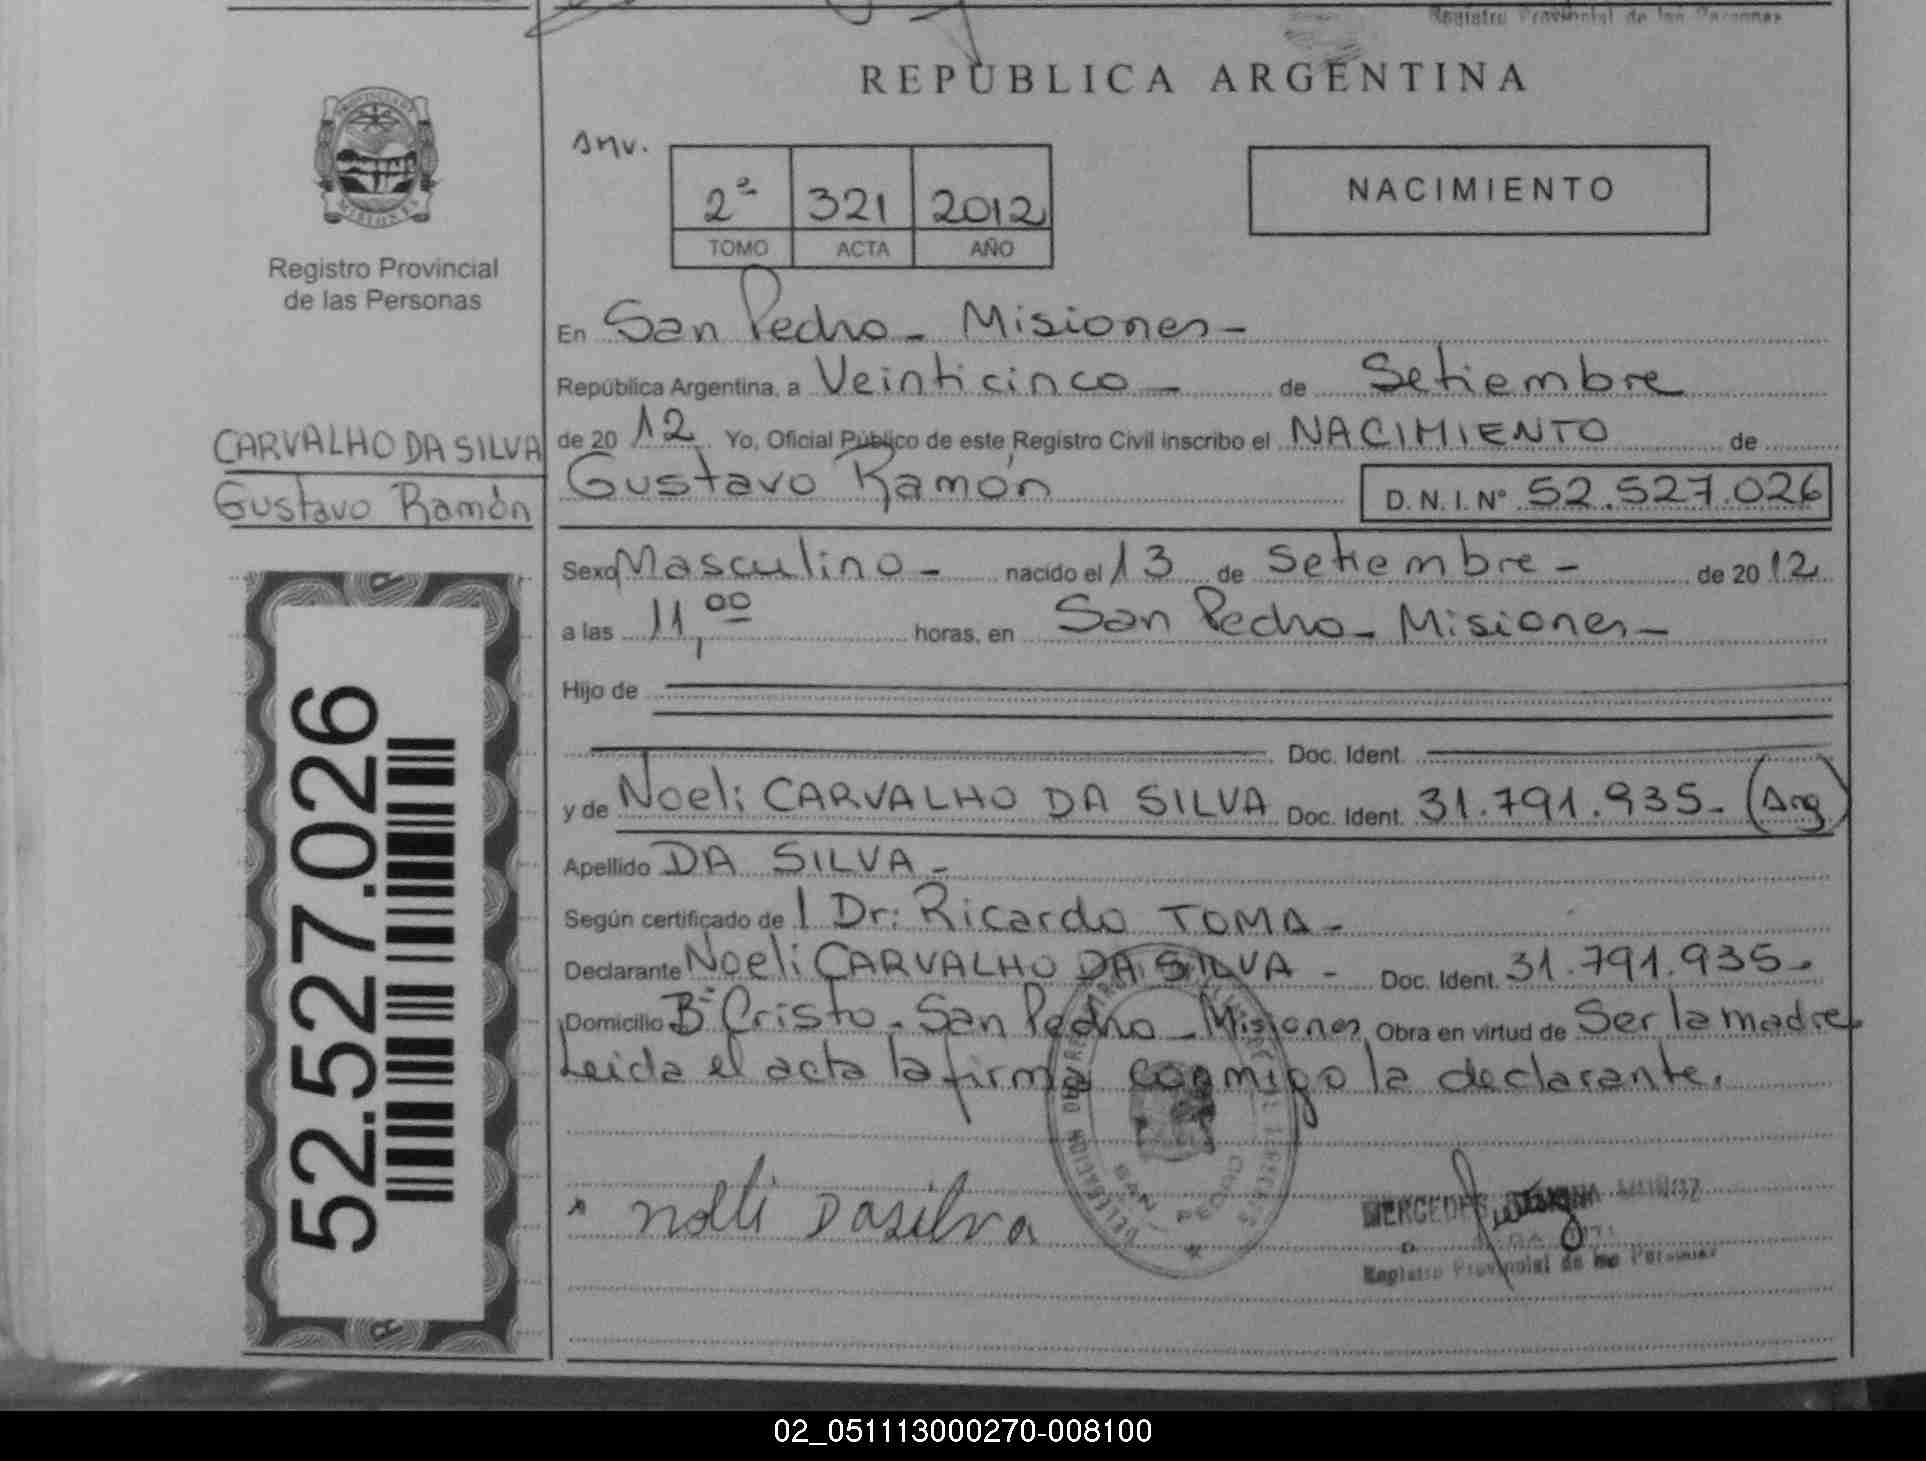 Registro Provincial de las Personas
REPUBLICA ARGENTINA
Anv.
2ª 321 2012
TOMO ACTA AÑO
NACIMIENTO
PROVINCIA DE
MISIONES
Registro Provincial
de las Personas
CARVALHO DA SILVA
Gustavo Ramón
52.527.026
En San Pedro - Misiones -
República Argentina, a Veinticinco - de Setiembre
de 20 12 Yo, Oficial Público de este Registro Civil inscribo el NACIMIENTO de
Gustavo Ramón D.N.I. Nº 52.527.026
Sexo Masculino - nacido el 13 de Setiembre - de 20 12
a las 11,00 horas, en San Pedro - Misiones -
Hijo de
Doc. Ident.
y de Noeli CARVALHO DA SILVA Doc. Ident. 31.791.935- (Arg)
Apellido DA SILVA -
Según certificado de l Dr: Ricardo TOMA -
Declarante Noeli CARVALHO DA SILVA - Doc. Ident. 31.791.935-
Domicilio Bº Cristo - San Pedro - Misiones Obra en virtud de Ser la madre
Leida el acta la firma conmigo la declarante.
SAN PEDRO
Nolli Dasilva
MERCEDES MUÑOZ
Registro Provincial de las Personas
02_051113000270-008100